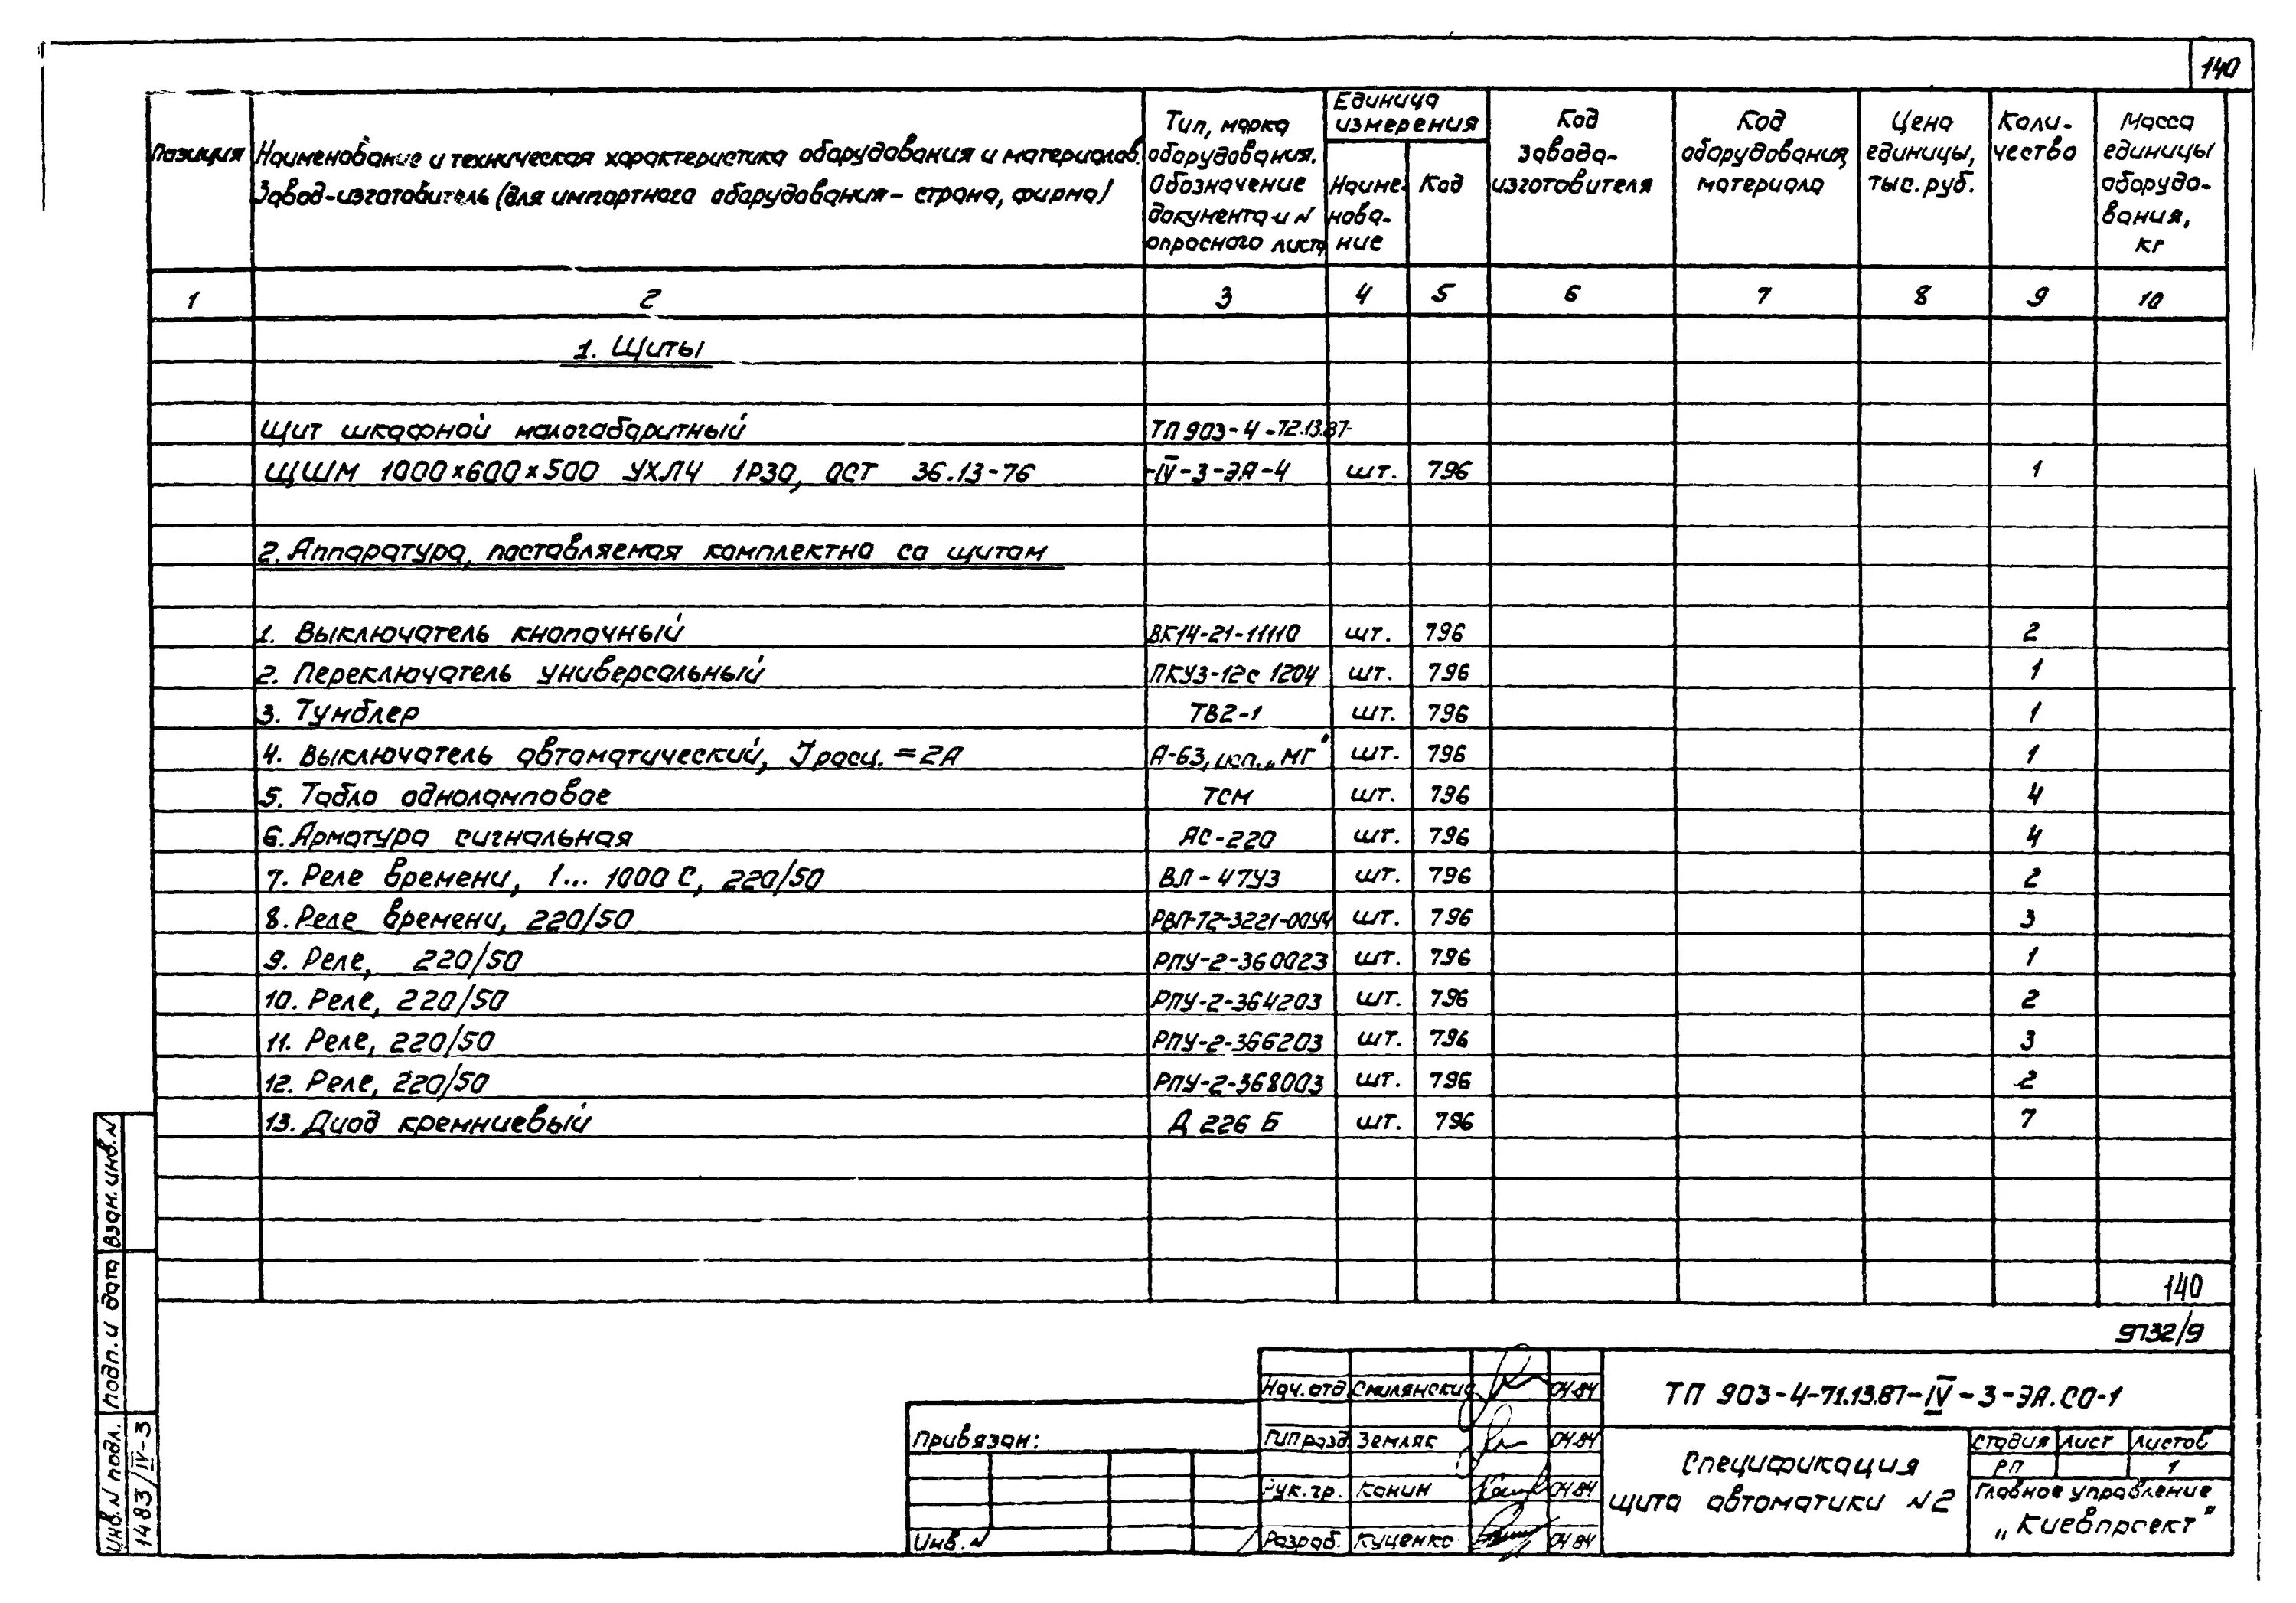 140
Позиция
Наименование и техническая характеристика оборудования и материалов.
Завод-изготовитель (для импортного оборудования - страна, фирма)
Тип, марка
оборудования.
Обозначение
документа и N
опросного листа
Единица
измерения
Наиме-
нова-
ние
Код
Код
завода-
изготовителя
Код
оборудования,
материала
Цена
единицы,
тыс. руб.
Коли-
чество
Масса
единицы
оборудо-
вания,
кг
1 2 3 4 5 6 7 8 9 10
1. Щиты
Щит шкафной малогабаритный ТП 903-4-72.13.87-
ЩШМ 1000х600х500 УХЛ4 1Р30, ОСТ 36.13-76 -IV-3-ЭА-4 шт. 796 1
2. Аппаратура, поставляемая комплектно со щитом
1. Выключатель кнопочный ВК14-21-11110 шт. 796 2
2. Переключатель универсальный ПКУ3-12с 1204 шт. 796 1
3. Тумблер ТВ2-1 шт. 796 1
4. Выключатель автоматический, Iрасц. = 2А А-63, исп. „МГ" шт. 796 1
5. Табло одноламповое ТСМ шт. 796 4
6. Арматура сигнальная АС-220 шт. 796 4
7. Реле времени, 1... 1000 С, 220/50 ВЛ-47У3 шт. 796 2
8. Реле времени, 220/50 РВП-72-3221-00У4 шт. 796 3
9. Реле, 220/50 РПУ-2-360023 шт. 796 1
10. Реле, 220/50 РПУ-2-364203 шт. 796 2
11. Реле, 220/50 РПУ-2-366203 шт. 796 3
12. Реле, 220/50 РПУ-2-368003 шт. 796 2
13. Диод кремниевый Д 226 Б шт. 796 7
140
9732/9
Взам. инв. N
Подп. и дата
Инв. N подл.
1483/IV-3
Привязан:
Инв. N
Нач. отд Смилянский 04.84
ГИП разд Земляк 04.84
Рук. гр. Канин 04.84
Разраб. Куценко 04.84
ТП 903-4-71.13.87-IV-3-ЭА.СО-1
Спецификация
щита автоматики N2
Стадия Лист Листов
РП 1
Главное управление
„Киевпроект"